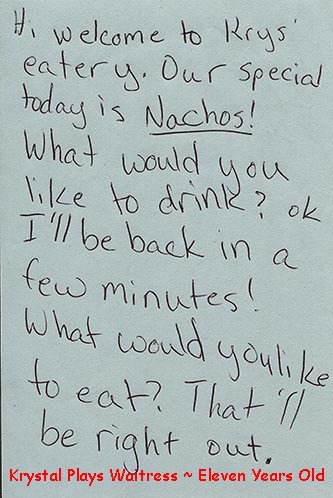 Hi welcome to Krys'
eatery. Our special
today is Nachos!
What would you
like to drink? ok
I'll be back in a
few minutes!
What would you like
to eat? That'll
be right out.
Krystal Plays Waitress ~ Eleven Years Old